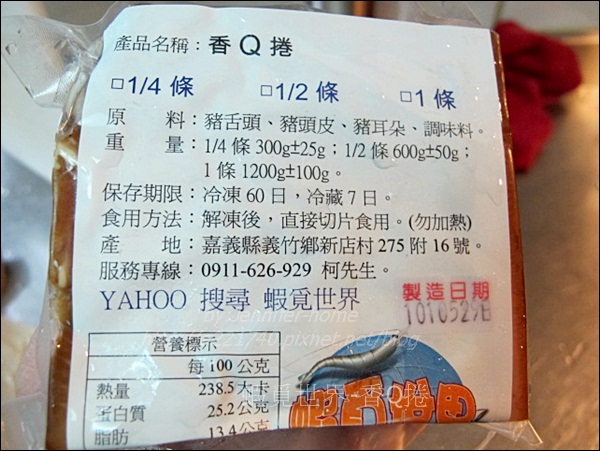 產品名稱：香 Q 捲
□1/4 條 □1/2 條 □1 條
原 料：豬舌頭、豬頭皮、豬耳朵、調味料。
重 量：1/4 條 300g±25g；1/2 條 600g±50g；
1 條 1200g±100g。
保存期限：冷凍 60 日，冷藏 7 日。
食用方法：解凍後，直接切片食用。(勿加熱)
產 地：嘉義縣義竹鄉新店村 275 附 16 號。
服務專線：0911-626-929 柯先生。
YAHOO 搜尋 蝦覓世界
製造日期
1010529日
營養標示
每 100 公克
熱量 238.5 大卡
蛋白質 25.2 公克
脂肪 13.4 公克
蝦覓世界
蝦覓世界-香Q捲